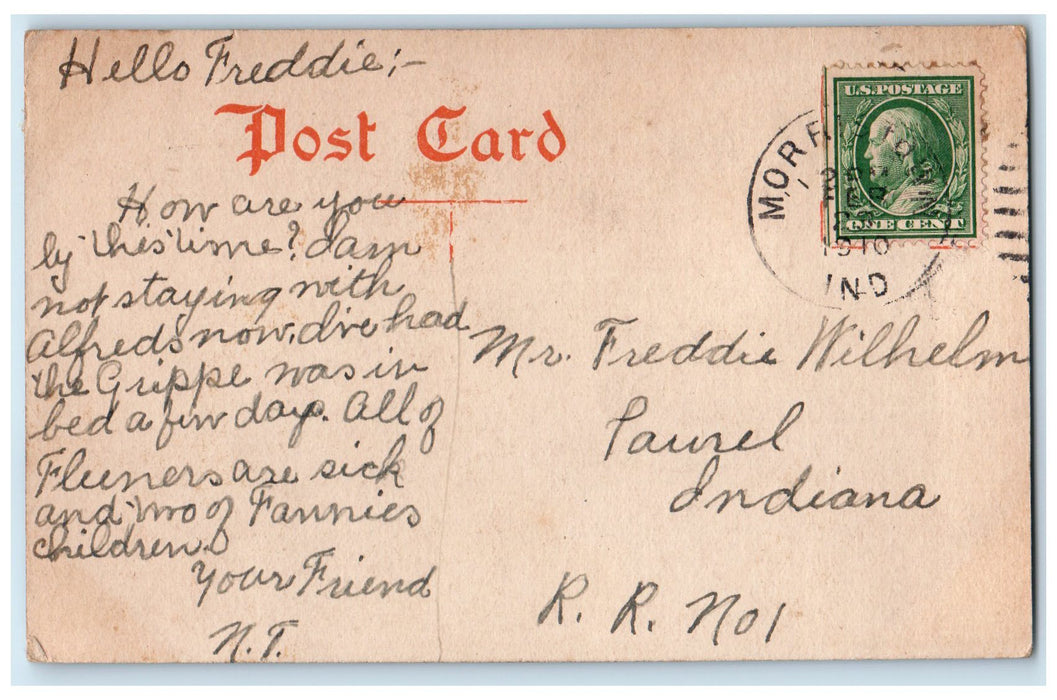 Hello Freddie;-
Post Card
How are you
by this time? I am
not staying with
Alfreds now. I've had
the Grippe was in
bed a few days. All of
Fleeners are sick
and two of Fannies
children.
Your Friend
N.T.
U.S. POSTAGE
ONE CENT
MORRISTOWN
1910
IND
Mr. Freddie Wilhelm
Laurel
Indiana
R. R. No 1